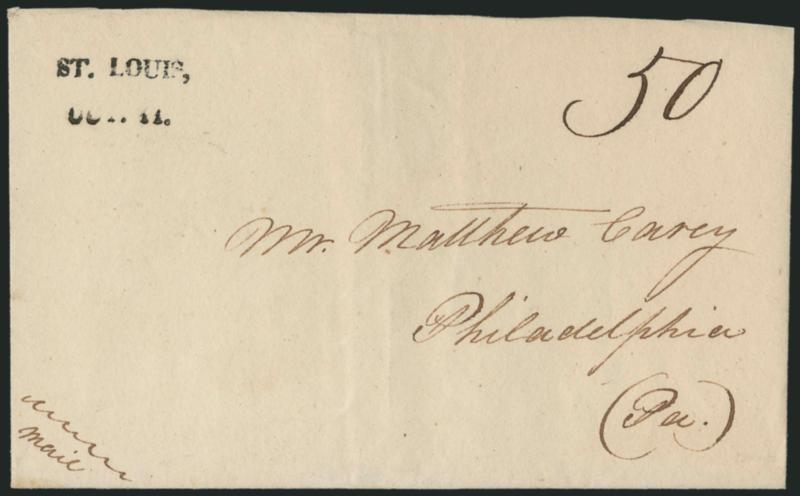 ST. LOUIS,
OCT. 11.
50
Mr. Matthew Carey
Philadelphia
(Pa.)
Mail